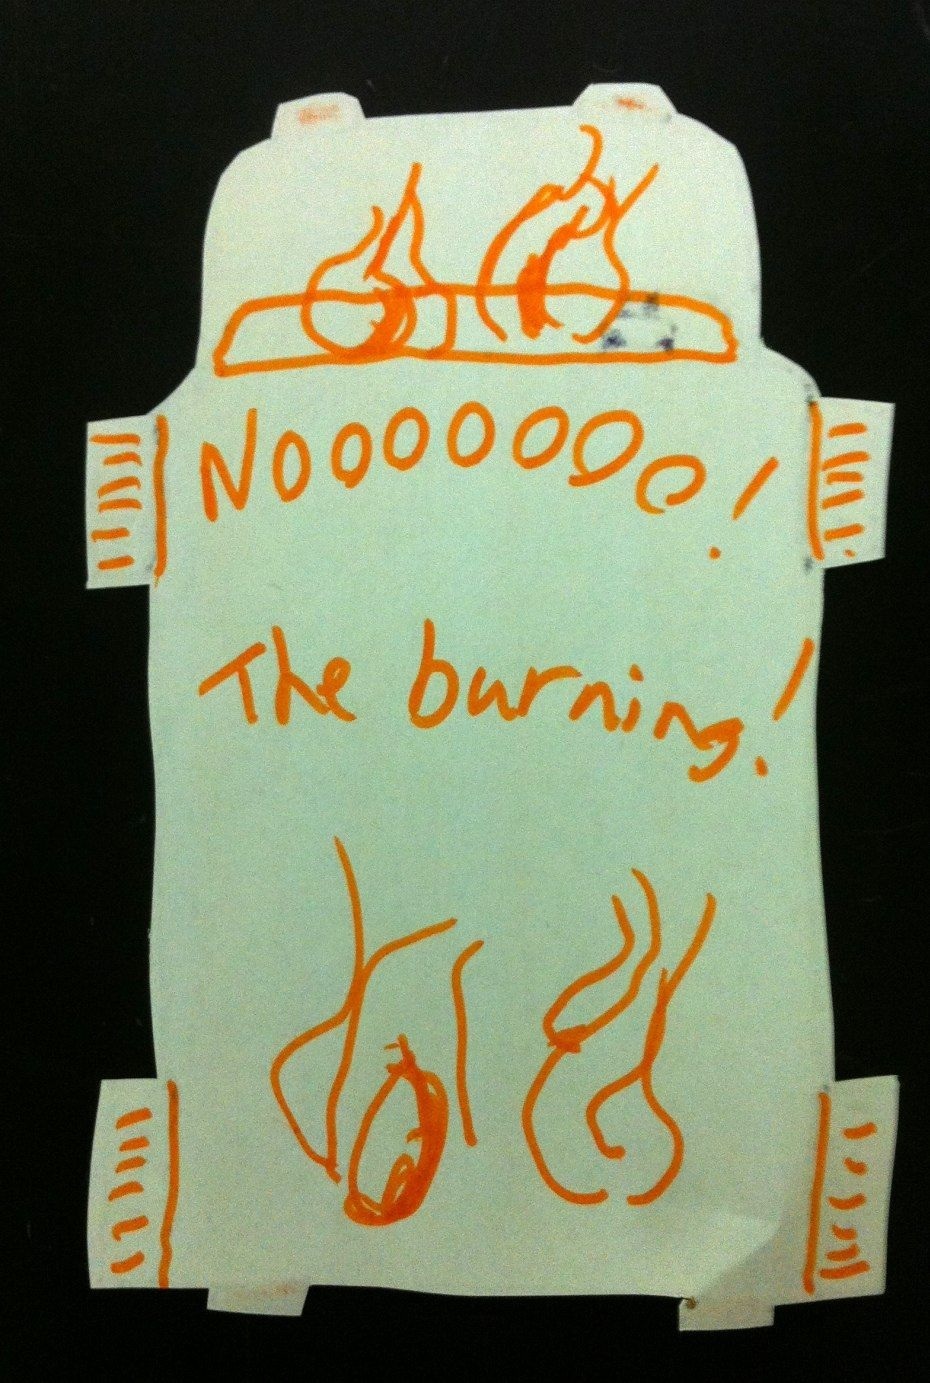 NOOOOOOO!
The burning!